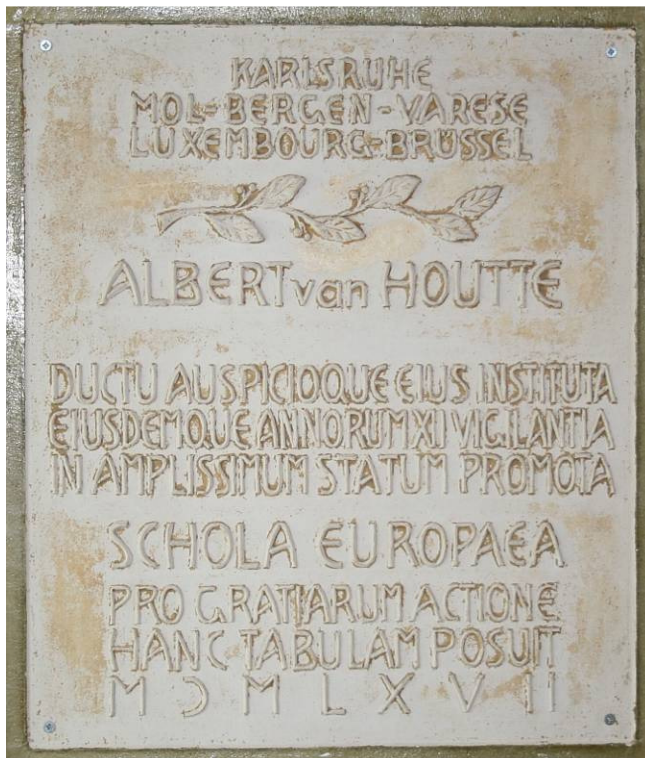 KARLSRUHE
MOL-BERGEN-VARESE
LUXEMBOURG-BRÜSSEL
ALBERT van HOUTTE
DUCTU AUSPICIOQUE EIUS INSTITUTA
EIUSDEMQUE ANNORUM XII VIGILANTIA
IN AMPLISSIMUM STATUM PROMOTA
SCHOLA EUROPAEA
PRO GRATIARUM ACTIONE
HANC TABULAM POSUIT
MↃMLXVII